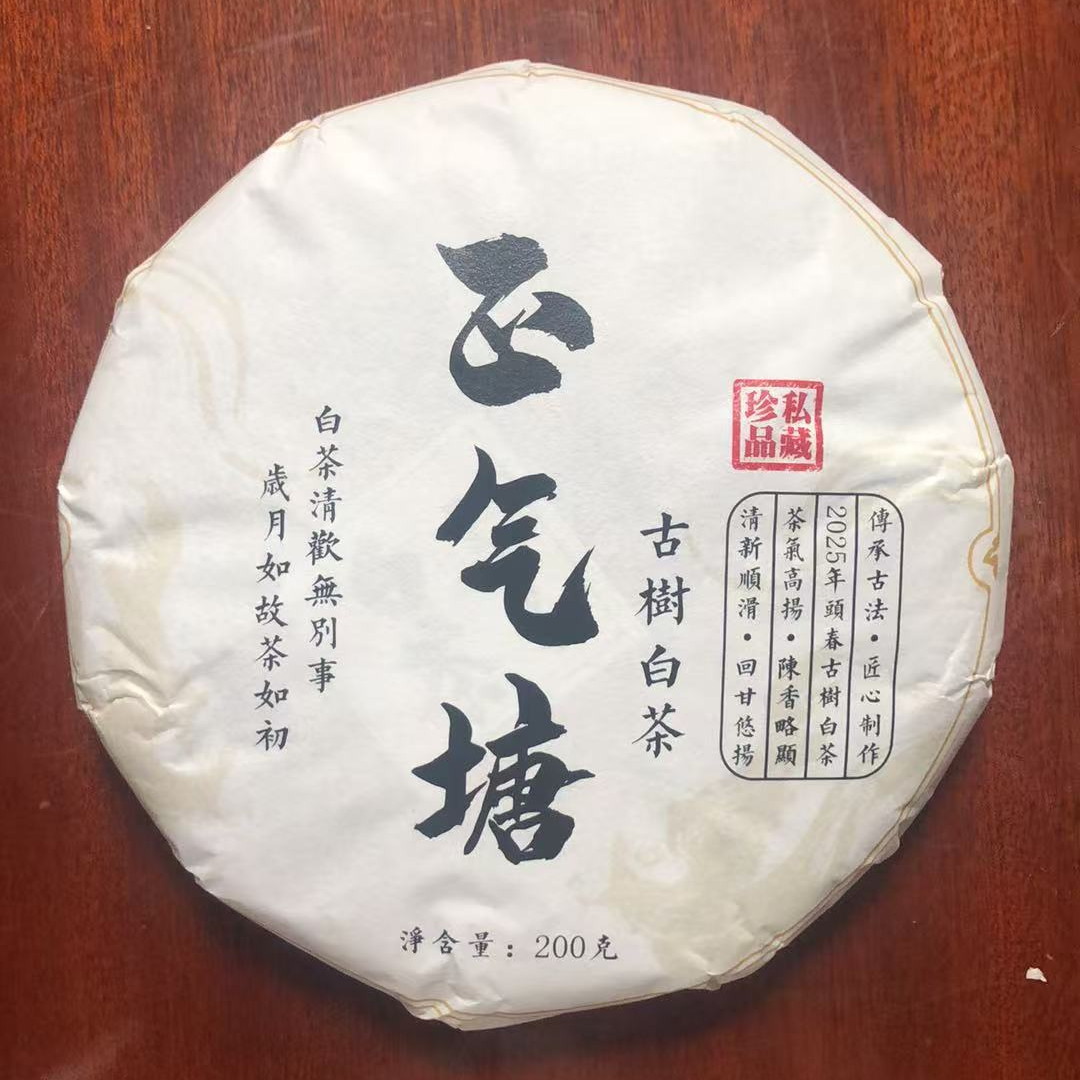 私藏
珍品
傳承古法·匠心制作
2025年頭春古樹白茶
茶氣高揚·陳香略顯
清新順滑·回甘悠揚
古樹白茶
正气塘
白茶清歡無別事
歲月如故茶如初
淨含量：200克